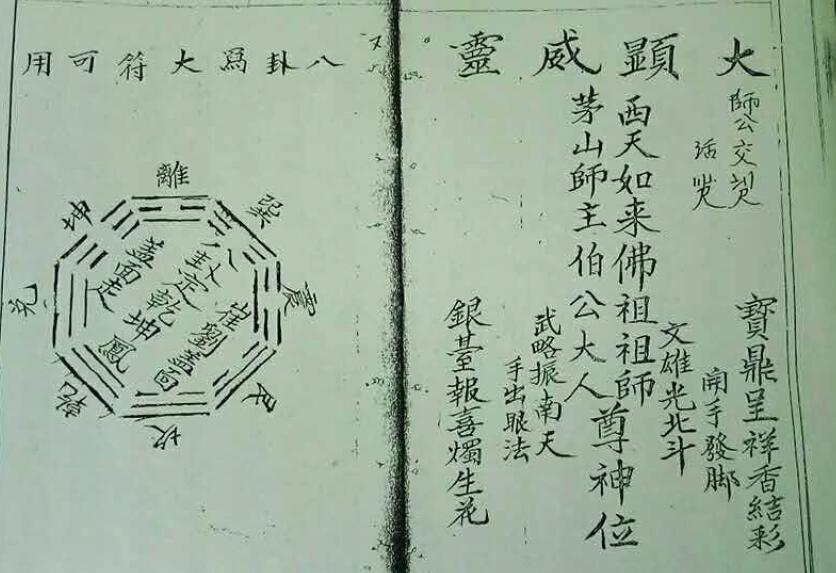 大顯威靈
師公交
寶鼎呈祥香結彩
開手發脚
文雄光北斗
西天如来佛祖祖師
茅山師主伯公大人
尊神位
武略振南天
手出眼法
銀臺報喜燭生花
又
八卦爲大符可用
離
巽
震
艮
坎
乾
兌
坤
崔劉蓋面
八卦定乾坤鳳
蓋面走